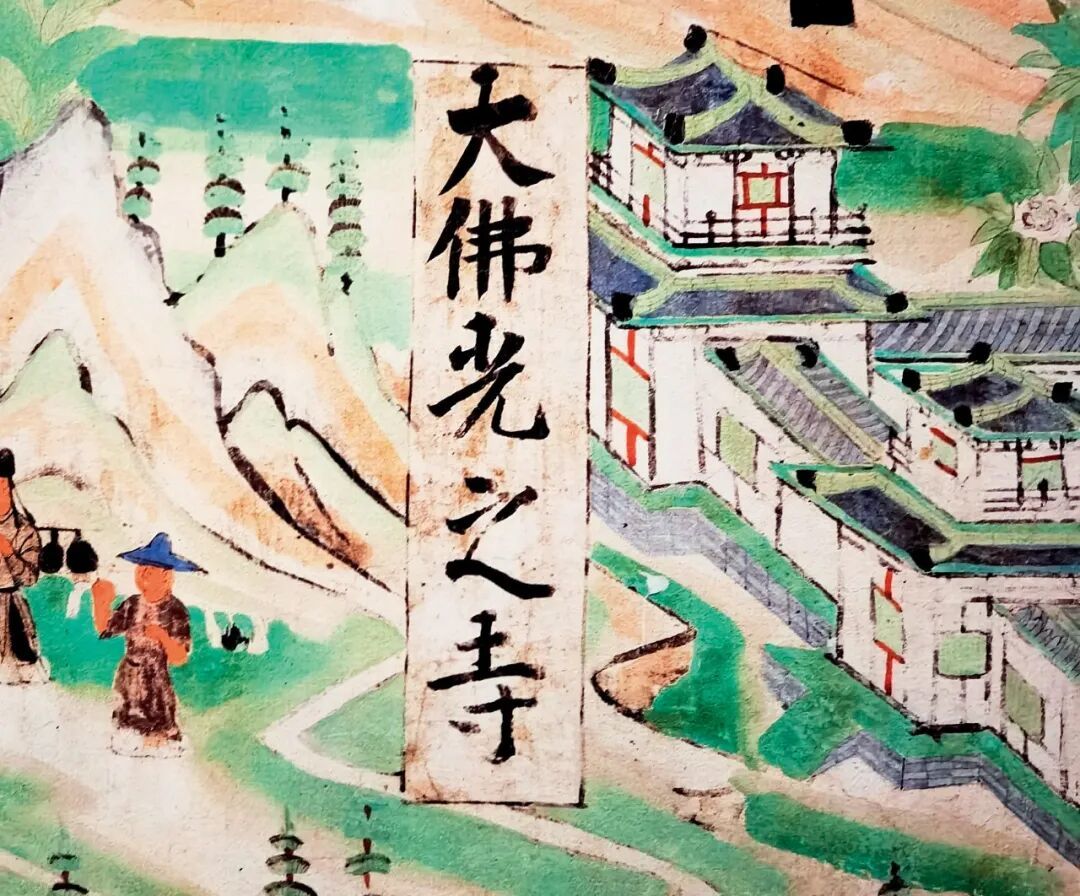 大佛光之寺